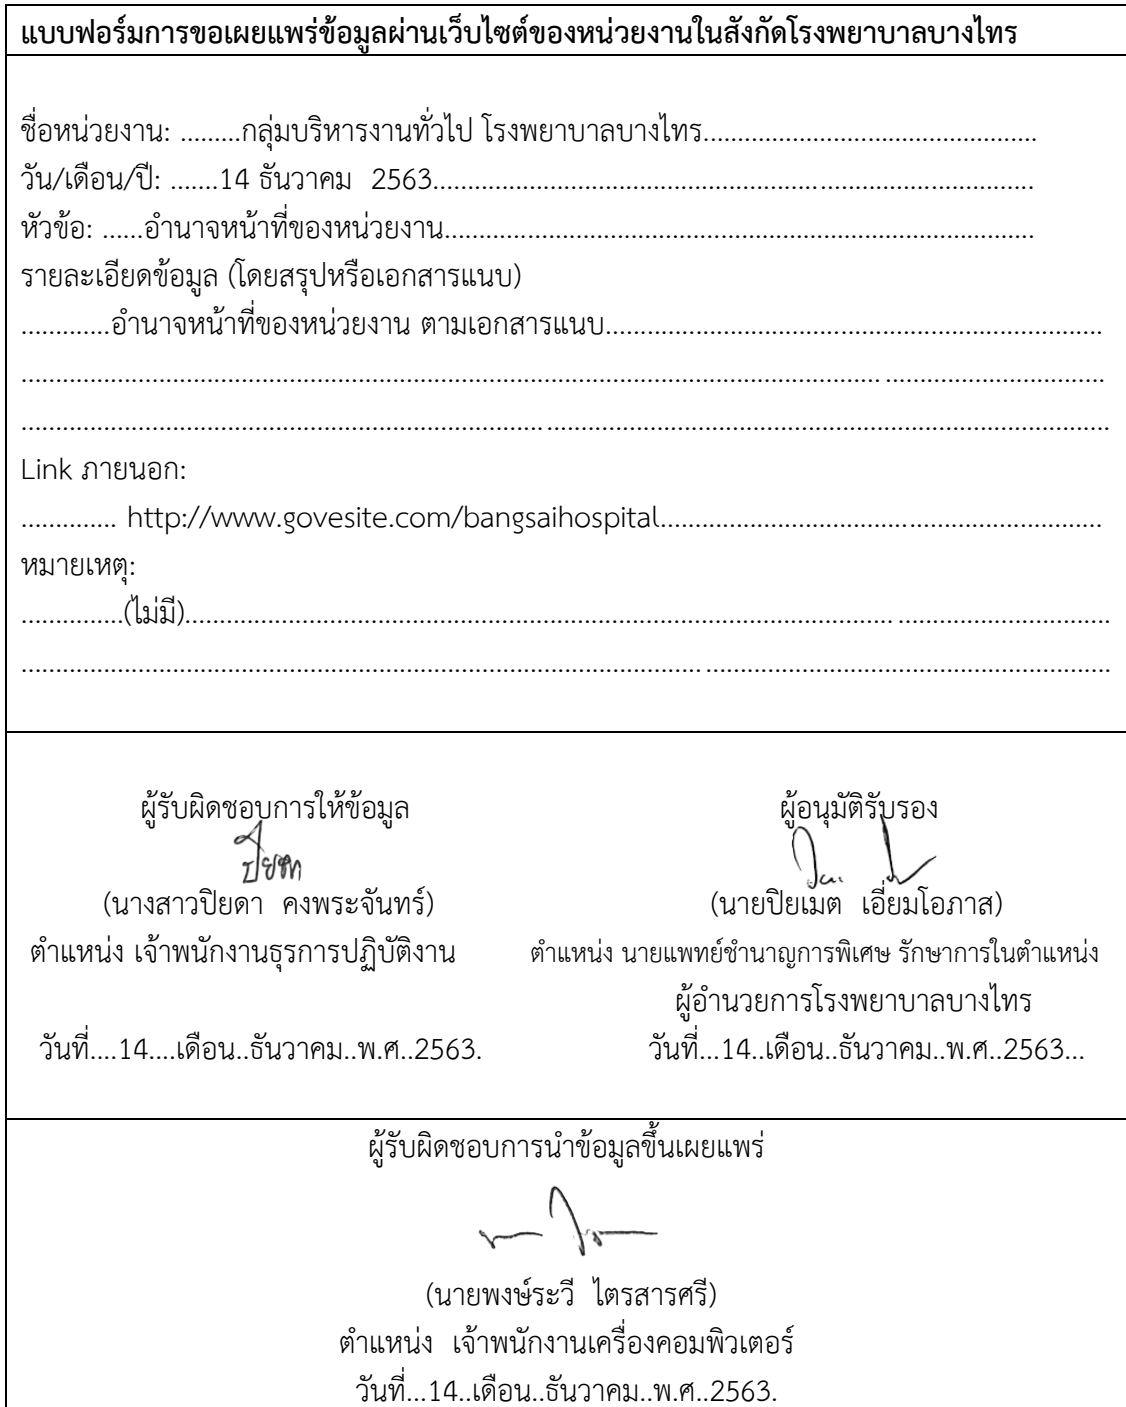 แบบฟอร์มการขอเผยแพร่ข้อมูลผ่านเว็บไซต์ของหน่วยงานในสังกัดโรงพยาบาลบางไทร
ชื่อหน่วยงาน: .........กลุ่มบริหารงานทั่วไป โรงพยาบาลบางไทร.................................................
วัน/เดือน/ปี: .......14 ธันวาคม  2563........................................................................................
หัวข้อ: ......อำนาจหน้าที่ของหน่วยงาน......................................................................................
รายละเอียดข้อมูล (โดยสรุปหรือเอกสารแนบ)
.............อำนาจหน้าที่ของหน่วยงาน ตามเอกสารแนบ.........................................................................
................................................................................................................................................................
................................................................................................................................................................
Link ภายนอก:
.............. http://www.govesite.com/bangsaihospital.................................................................
หมายเหตุ:
...............(ไม่มี).......................................................................................................................................
................................................................................................................................................................
ผู้รับผิดชอบการให้ข้อมูล ผู้อนุมัติรับรอง
ปิยดา
(นางสาวปิยดา  คงพระจันทร์) (นายปิยเมต  เอี่ยมโอภาส)
ตำแหน่ง เจ้าพนักงานธุรการปฏิบัติงาน ตำแหน่ง นายแพทย์ชำนาญการพิเศษ รักษาการในตำแหน่ง
ผู้อำนวยการโรงพยาบาลบางไทร
วันที่....14....เดือน..ธันวาคม..พ.ศ..2563. วันที่...14..เดือน..ธันวาคม..พ.ศ..2563...
ผู้รับผิดชอบการนำข้อมูลขึ้นเผยแพร่
(นายพงษ์ระวี  ไตรสารศรี)
ตำแหน่ง  เจ้าพนักงานเครื่องคอมพิวเตอร์
วันที่...14..เดือน..ธันวาคม..พ.ศ..2563.